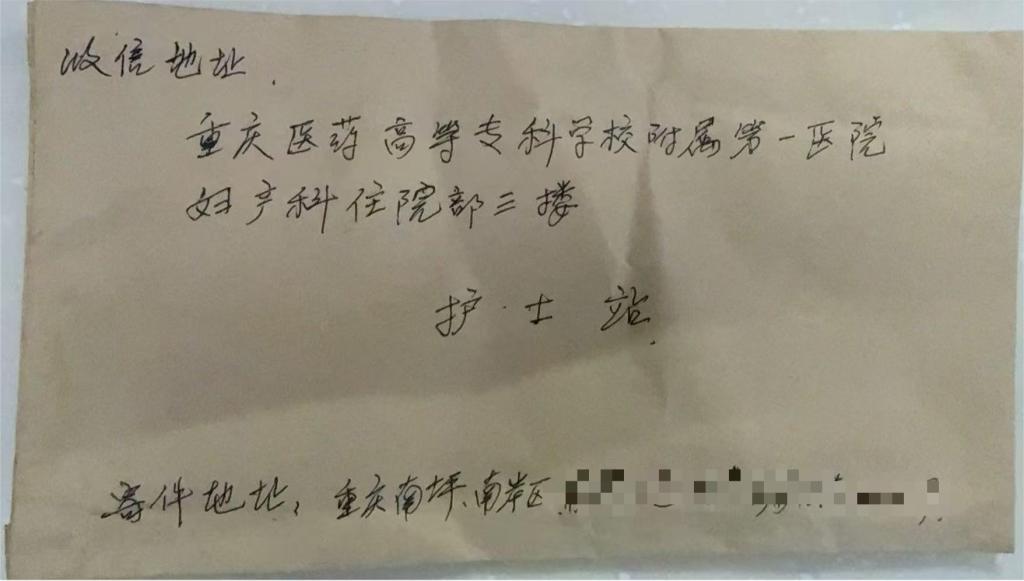 收信地址.
重庆医药高等专科学校附属第一医院
妇产科住院部三楼
护士站.
寄件地址：重庆南坪、南岸区